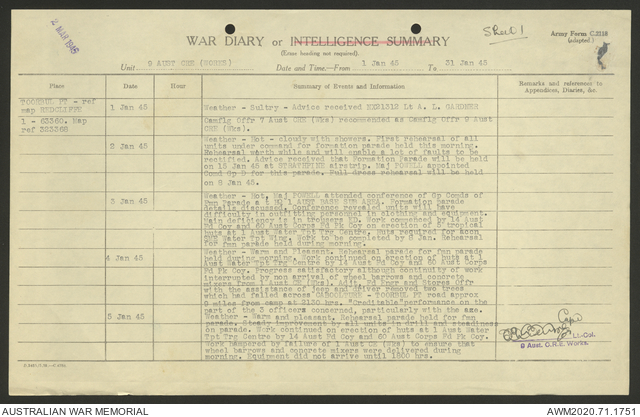 2 MAR 1945
WAR DIARY or INTELLIGENCE SUMMARY
(Erase heading not required).
Sheet 1
Army Form C.2118
(adapted.)
Unit 9 AUST CRE (WORKS)
Date and Time.—From 1 Jan 45 To 31 Jan 45
Place
Date
Hour
Summary of Events and Information
Remarks and references to Appendices, Diaries, &c.
TOORBUL PT - ref
map REDCLIFFE
1 - 63360. Map
ref 322368
1 Jan 45
Weather - Sultry - Advice received Lt A. L. GARDNER
Camflg Offr 7 Aust CRE (Wks) recommended as Camflg Offr 9 Aust
CRE (Wks).
2 Jan 45
Weather - Hot - cloudy with showers. First rehearsal of all
units under command for formation parade held this morning.
Rehearsal worth while and will enable a lot of faults to be
rectified. Advice received that Formation Parade will be held
on 15 Jan 45 at STRATHPINE airstrip. Maj POWELL appointed
Comd Gp D for this parade. Full dress rehearsal will be held
on 8 Jan 45.
3 Jan 45
Weather - Hot, Maj POWELL attended conference of Gp Comds of
Fmn Parade a t HQ 1 AUST BASE SUB AREA. Formation parade
details discussed. Conference revealed units will have
difficulty in outfitting personnel in clothing and equipment.
Main deficiency is in trousers KD. Work commenced by 14 Aust
Fd Coy and 60 Aust Corps Fd Pk Coy on erection of 5 tropical
huts at 1 Aust Water Tpt Trg Centre. Huts required for accn
Water Tpt Wing. Work to be completed by 8 Jan. Rehearsal
for fmn parade held during morning.
4 Jan 45
Weather - Warm and Pleasant. Rehearsal parade for fmn parade
held during morning. Work continued on erection of huts at 1
Aust Water Tpt Trg Centre by 14 Aust Fd Coy and 60 Aust Corps
Fd Pk Coy. Progress satisfactory although continuity of work
interrupted by non arrival of wheel barrows and concrete
mixers from 1 Aust CE (Wks). Adjt, Fd Engr and Stores Offr
with the assistance of jeep and driver removed two trees
which had fallen across CABOOLTURE - TOORBUL PT road approx
2 miles from camp at 2130 hrs. "Creditable" performance on the
part of the 3 officers concerned, particularly with the axe.
5 Jan 45
Weather - Warm and pleasant. Rehearsal parade held for fmn
parade. Steady improvement by all units in drill and steadiness
on parade. Work continued on erection of huts at 1 Aust Water
Tpt Trg Centre by 14 Aust Fd Coy and 60 Aust Corps Fd Pk Coy.
Work hampered by failure of 1 Aust CE (Wks) to ensure that
wheel barrows and concrete mixers were delivered during
morning. Equipment did not arrive until 1800 hrs.
Capt
Lt-Col.
9 Aust. C.R.E. Works.
AUSTRALIAN WAR MEMORIAL
AWM2020.71.1751